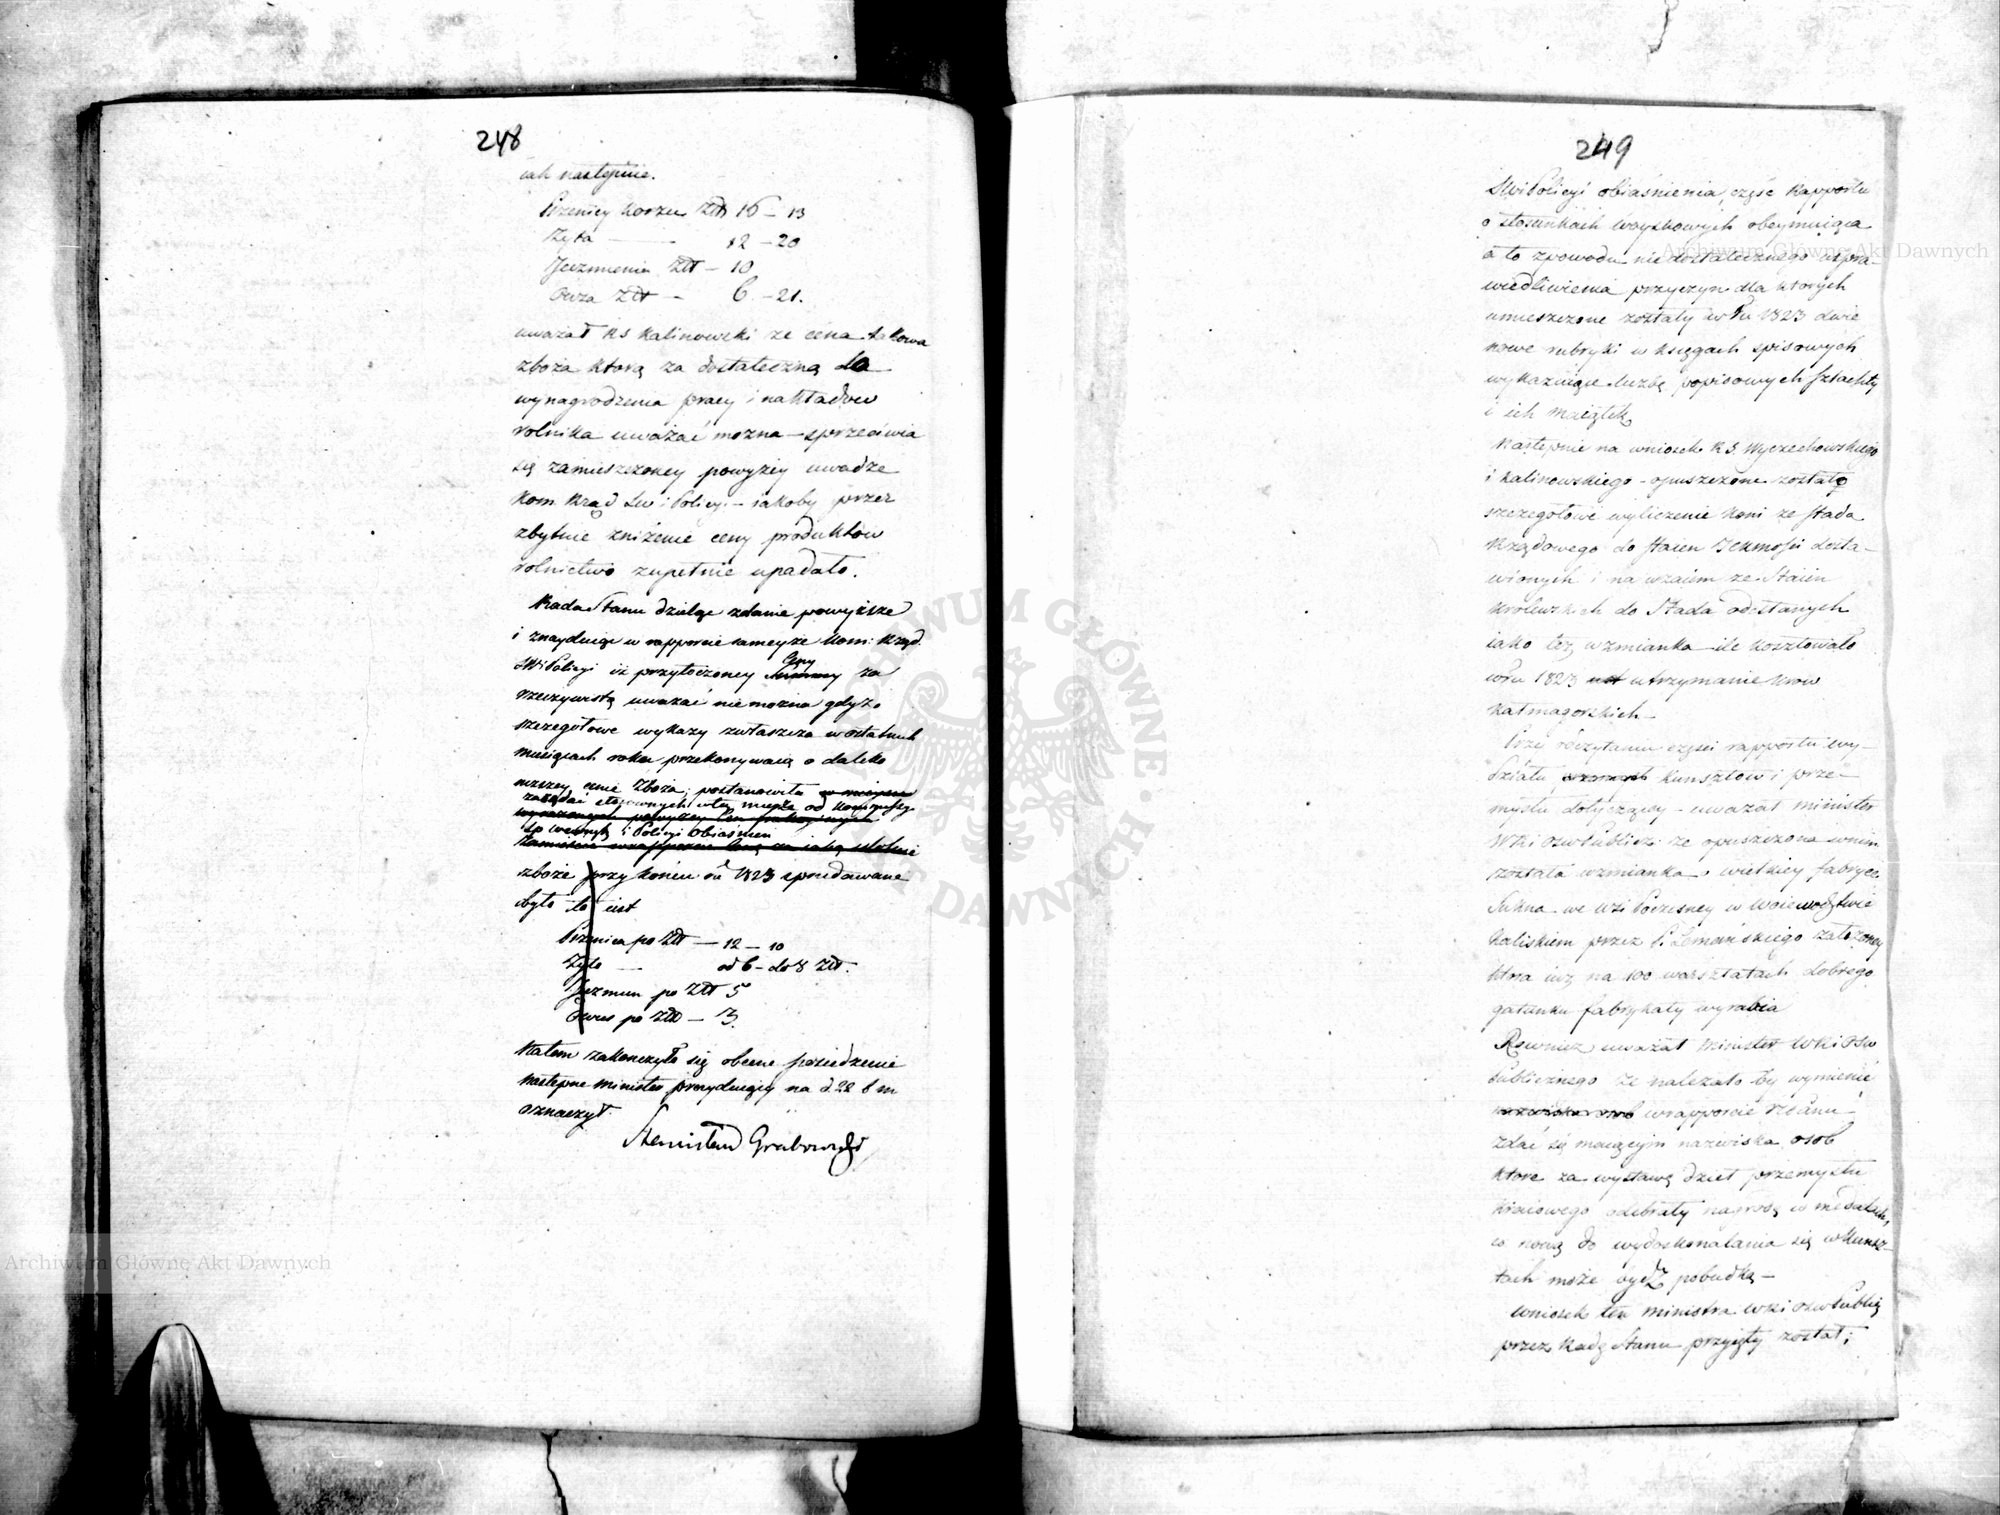 248
iak następuie.
Pszenicy Korzec Złt 16 – 13
Żyta — 12 – 20
Jęczmienia Złt – 10
Owsa Złt – 6 – 21.
uważał RS Kalinowski ze cena takowa
zboża ktorą za dostateczną do
wynagrodzenia pracy i nakładow
rolnika uważać mozna – sprzeciwia
się zamieszczoney powyżey uwadze
Kom Rząd Sw i Policyi – iakoby przez
zbytnie zniżenie ceny produktow
rolnictwo zupełnie upadało.
Rada Stanu dzieląc zdanie powyższe
i znayduiąc w rapporcie teyze Kom: Rząd.
SWi Policyi iż przytoczoney Ceny za
rzeczywistą uważać nie mozna gdyż
szczegołowe wykazy zwłaszcza w ostatnich
miesiącach roku przekonywaią o daleko
niższey cenie Zboża; postanowiła
zażądać stosownych w tey mierze od Kommissyi
Sp wewnę i Policyi obiaśnień
zboże przy końcu ru 1823 sprzedawane
było to iest
Pszenica po Złt — 12 – 10
Żyto — od 6 – do 8 Złt.
Jęczmień po Złt 5
Owies po Złt – 3.
Na tem zakończyło się obecne posiedzenie
następne minister prezyduiący na d 22 b m
oznaczył.
Stanisław Grabowski
249
SWi Policyi obiaśnienia, częśc Rapportu
o stosunkach woyskowych obeymuiąca
a to z powodu niedostatecznego uspra-
wiedliwienia przyczyn dla ktorych
umieszczone zostały w Ru 1823 dwie
nowe rubryki w księgach spisowych
wykazuiące liczbę popisowych szlachty
i ich maiątek
Następnie na wniosek R.S. Wyczechowskiego
i Kalinowskiego – opuszczone zostało
szczegołowe wyliczenie koni ze stada
Rządowego do staien JCKmosci dosta-
wionych i na wzaiem ze Staien
Krolewskich do Stada odesłanych
iako też wzmianka ile kosztowało
w Ru 1823 utrzymanie krow
Przy odczytaniu części rapportu wy-
działu kunsztow i prze-
mysłu dotyczącey – uważał minister
WRi Ośw Publicz: ze opuszczona w nim
została wzmianka o wielkiey fabryce
Sukna we wsi Poczesney w Woiewodztwie
Kaliskiem przez P. Lemańskiego założoney
ktora iuż na 100 warsztatach dobrego
gatunku fabrykaty wyrabia
Rownież uważał minister WRi Ośw
Publicznego ze należało by wymienić
w rapporcie
zdać się maiącym nazwiska osob
ktore za wystawę dzieł przemysłu
kraiowego odebrały nagrodę w medalach,
co nową do wydoskonalania się w kunsz-
tach może bydź pobudką –
wniosek ten ministra WRi Ośw Public
przez Radę Stanu przyięty został;
Archiwum Główne Akt Dawnych
Archiwum Główne Akt Dawnych
ARCHIWUM GŁÓWNE AKT DAWNYCH